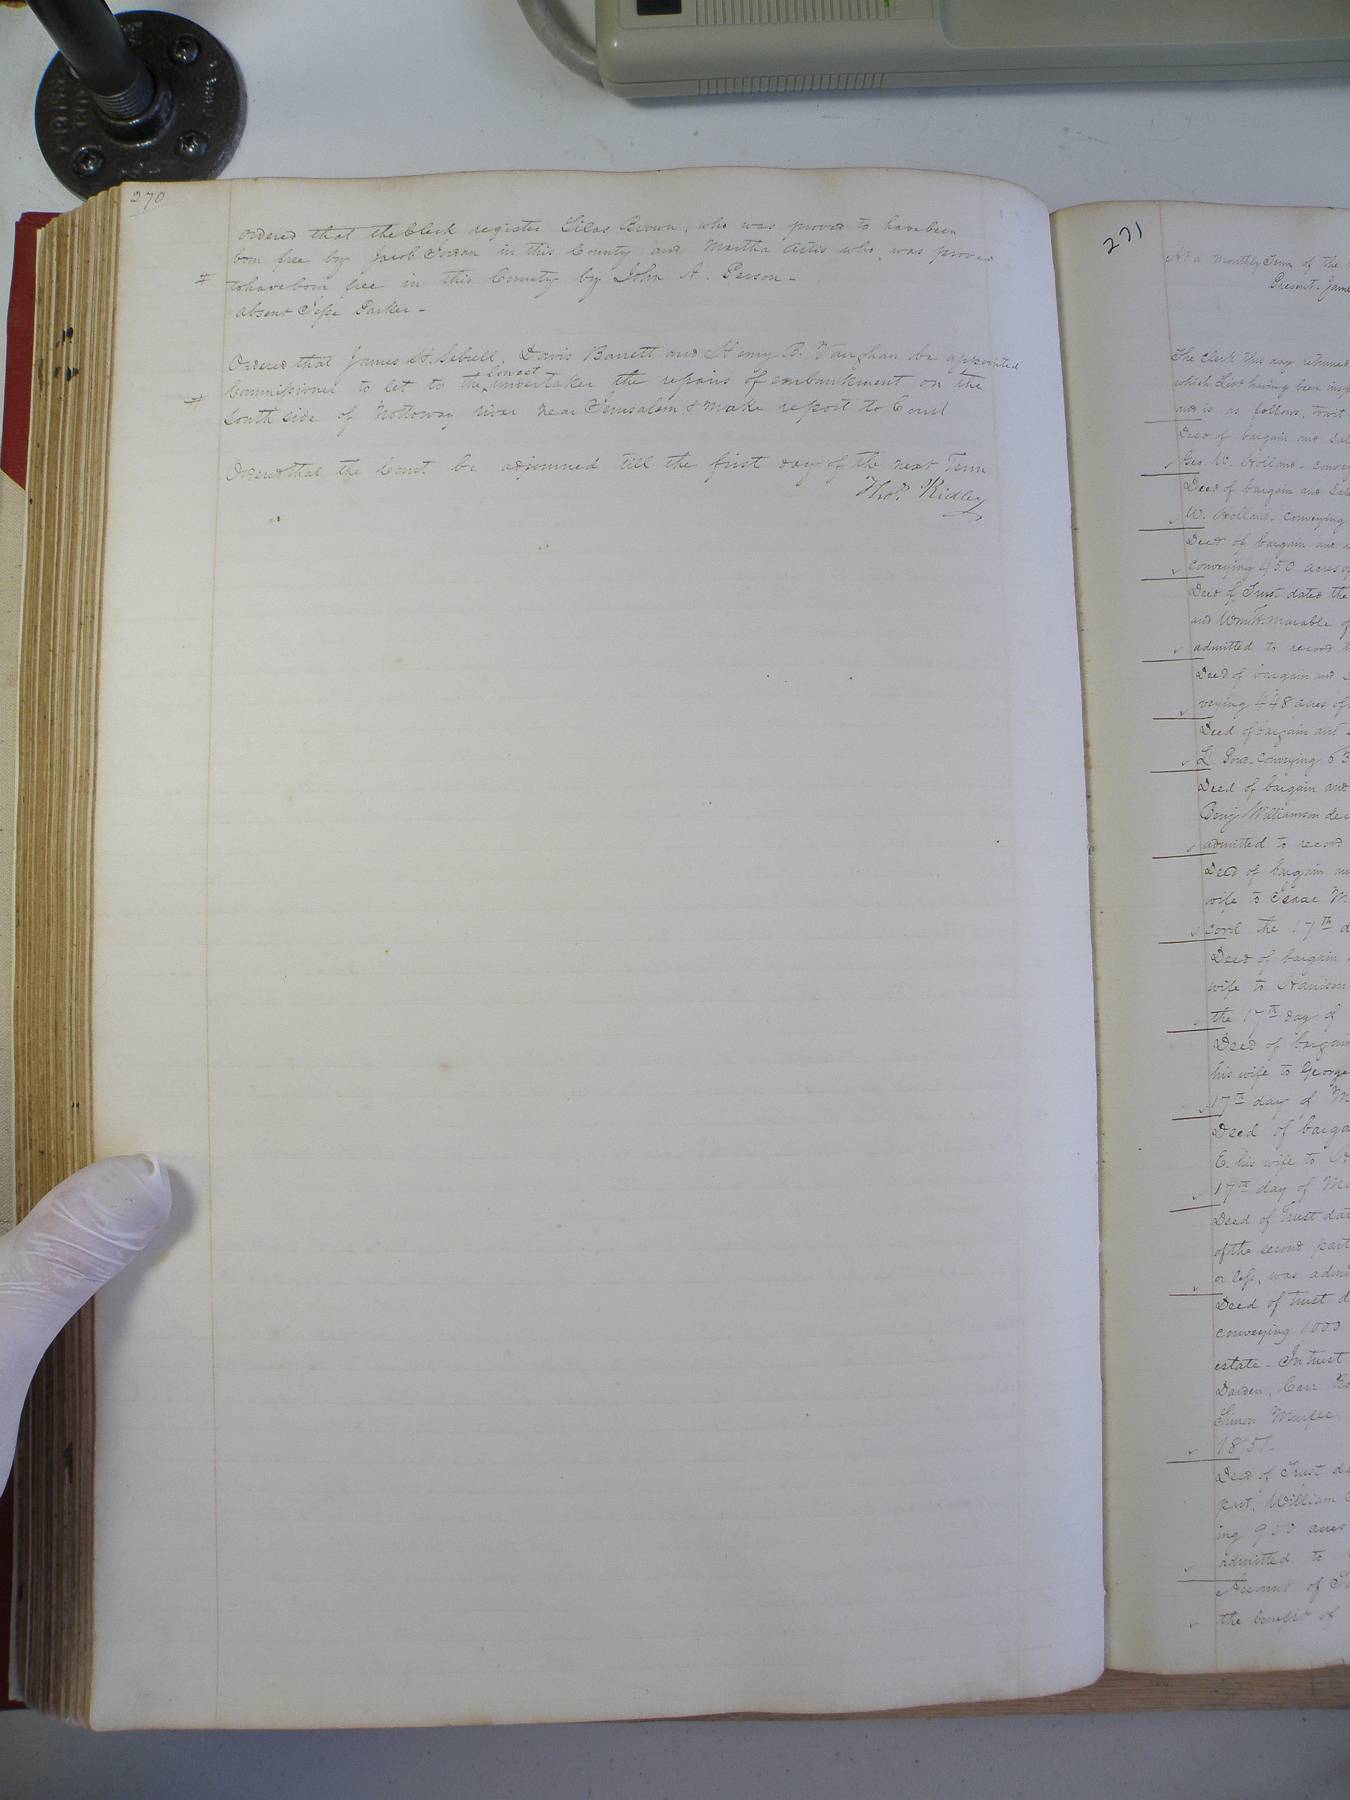 270
Ordered that the Clerk register Silas Brown, who was proved to have been
born free by Jacob in this County and Martha Artis who was proved
to have born free in this County by John A. Person -
absent Jesse Parker -
Ordered that James H. Sebrell, Davis Barrett and Henry B. Vaughan be appointed
lowest
Commissioner to let to the undertaker the repairs of embankment on the
South side of Nottoway river near Jerusalem & make report to Court
Ordered that the Court be adjourned till the first day of the next Term
Thos. Ridley
271
At a Monthly Term of the
Present - Jame
The Clerk this day returned
which List having been insp
and is as follows, towit
Deed of bargain and Sal
Geo. W. Holland - convey
Deed of bargain and Sale
W. Holland - conveying
Deed of bargain and
conveying 450 acres of
Deed of Trust dated the
and Wm H. Marable of
admitted to record t
Deed of bargain and S
veying 448 acres of
Deed of bargain and
L. conveying 63
Deed of bargain and
Benj Williamson dec
admitted to record
Deed of bargain an
wife to Isaac M
cord the 17th d
Deed of bargain
wife to Harrison
the 17th day of
Deed of bargain
his wife to George
17th day of M
Deed of barga
E. his wife to
17th day of Ma
Deed of Trust dat
of the second part
or less, was admi
Deed of trust d
conveying 1000
estate - In trust
Darden, Carr
Simon Murfee
1851-
Deed of Trust da
part, William
ing 900 acres
admitted to
Account of
the benefit of